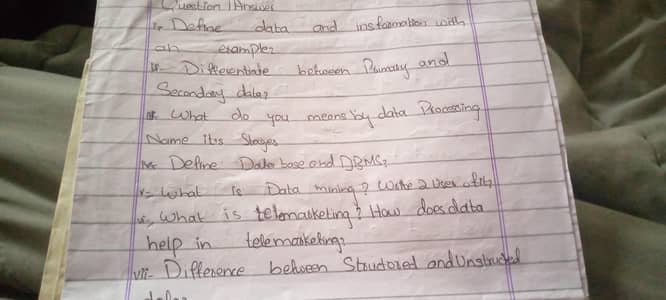 Question / Answer
i- Define data and insformation with
an example?
ii- Differentiate between Primary and
Secondary data?
iii- What do you means by data Processing
Name its Stages
iv- Define Data base and DBMS?
v- What is Data mining? Write 2 Uses of it?
vi- What is telemarketing? How does data
help in telemarketing?
vii- Difference between Structored and Unstructed
data?